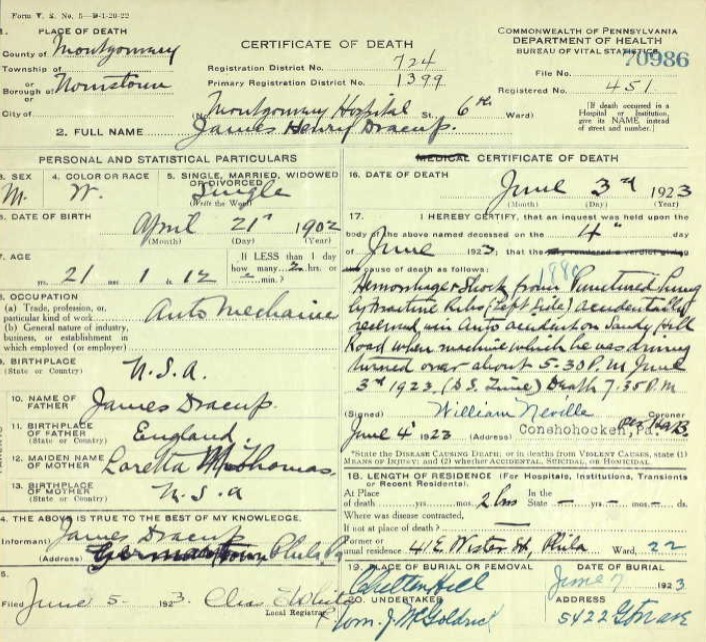 Form V. S. No. 5—
COMMONWEALTH OF PENNSYLVANIA
DEPARTMENT OF HEALTH
BUREAU OF VITAL STATISTICS
1. PLACE OF DEATH
County of Montgomery
Township of
or
Borough of Norristown
or
City of
CERTIFICATE OF DEATH
Registration District No. 724
Primary Registration District No. 1399
70986
File No.
Registered No. 451
(No. Montgomery Hospital St., 6th Ward)
[If death occurred in a
Hospital or Institution,
give its NAME instead
of street and number.]
2. FULL NAME James Henry Dracup.
PERSONAL AND STATISTICAL PARTICULARS
3. SEX
M.
4. COLOR OR RACE
W.
5. SINGLE, MARRIED, WIDOWED
OR DIVORCED
(Write the Word)
Single
6. DATE OF BIRTH
April 21" 1902
(Month) (Day) (Year)
7. AGE
If LESS than 1 day
how many hrs. or
min.?
yrs. 21 mos 1 ds 12
8. OCCUPATION
(a) Trade, profession, or
particular kind of work
Auto Mechanic
(b) General nature of industry,
business, or establishment in
which employed (or employer)
9. BIRTHPLACE
(State or Country)
U.S.A.
10. NAME OF
FATHER
James Dracup.
11. BIRTHPLACE
OF FATHER
(State or Country)
England.
12. MAIDEN NAME
OF MOTHER
Loretta M. Thomas.
13. BIRTHPLACE
OF MOTHER
(State or Country)
U.S.A
14. THE ABOVE IS TRUE TO THE BEST OF MY KNOWLEDGE.
(Informant) James Dracup
(Address) Germantown, Phila, Pa
15.
Filed June 5- 1923
Local Registrar
MEDICAL CERTIFICATE OF DEATH
16. DATE OF DEATH
June 3rd 1923
(Month) (Day) (Year)
17. I HEREBY CERTIFY, that an inquest was held upon the
body of the above named deceased on the 4" day
of June 1923; that the
cause of death as follows:
Hemorrhage & Shock from Punctured Lung
by Fracture Ribs (Left Side) accidentally
received in an Auto accident on Sandy Hill
Road when machine which he was driving
turned over about 5-30 P.M June
3rd 1923, (D.S. Time) Death 7.35 P.M
(Signed) William Neville Coroner
June 4" 1923 (Address) Conshohocken, Pa.
*State the DISEASE CAUSING DEATH; or in deaths from VIOLENT CAUSES, state (1)
MEANS OF INJURY; and (2) whether ACCIDENTAL, SUICIDAL, OR HOMICIDAL.
18. LENGTH OF RESIDENCE (For Hospitals, Institutions, Transients
or Recent Residents).
At Place
of death yrs. mos. 2 hrs In the
State — yrs — mos — ds.
Where was disease contracted,
If not at place of death? —
Former or
usual residence 41 E. Wister St, Phila Ward, 22
19. PLACE OF BURIAL OR REMOVAL
Chelten Hill
DATE OF BURIAL
June 7 1923
20. UNDERTAKER
Wm. J. McGoldrick
ADDRESS
5422 Gtn ave